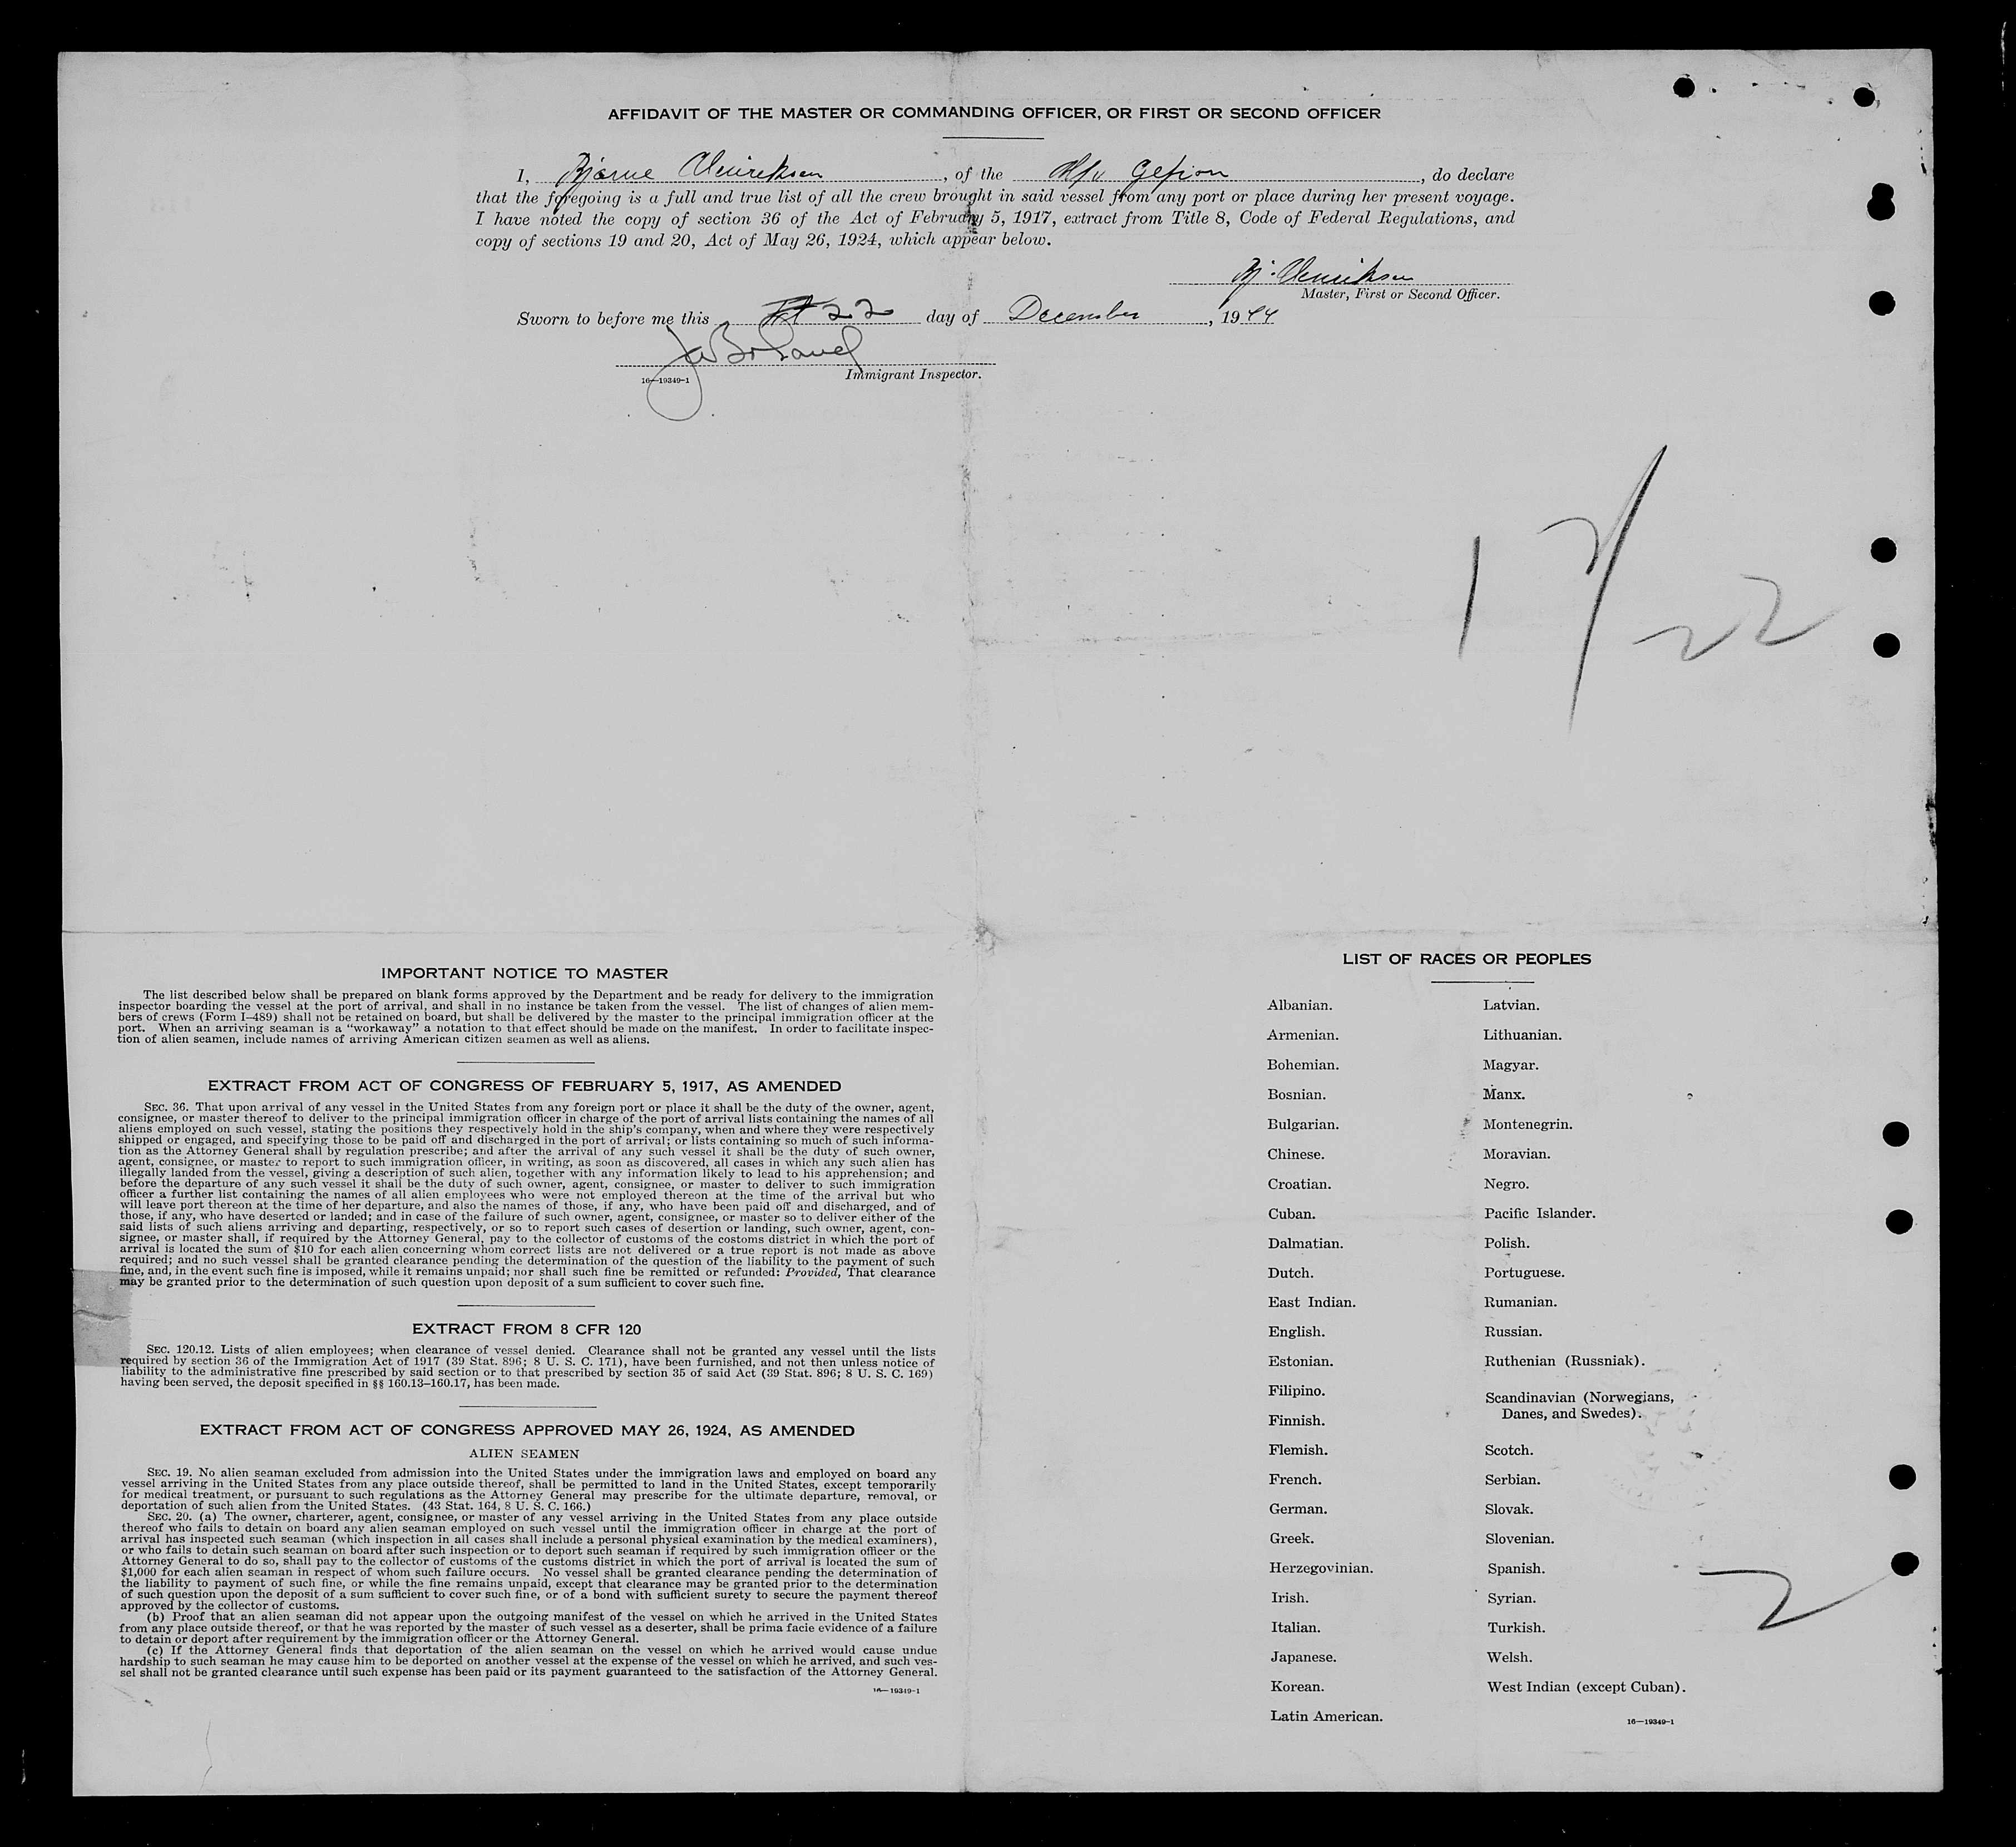 AFFIDAVIT OF THE MASTER OR COMMANDING OFFICER, OR FIRST OR SECOND OFFICER
I, Bjarne Henriksen, of the M/v Gefion, do declare
that the foregoing is a full and true list of all the crew brought in said vessel from any port or place during her present voyage.
I have noted the copy of section 36 of the Act of February 5, 1917, extract from Title 8, Code of Federal Regulations, and
copy of sections 19 and 20, Act of May 26, 1924, which appear below.
Bj. Henriksen
Master, First or Second Officer.
Sworn to before me this 22 day of December, 1944
Immigrant Inspector.
16—19349-1
12/22
IMPORTANT NOTICE TO MASTER
The list described below shall be prepared on blank forms approved by the Department and be ready for delivery to the immigration
inspector boarding the vessel at the port of arrival, and shall in no instance be taken from the vessel. The list of changes of alien mem-
bers of crews (Form I-489) shall not be retained on board, but shall be delivered by the master to the principal immigration officer at the
port. When an arriving seaman is a "workaway" a notation to that effect should be made on the manifest. In order to facilitate inspec-
tion of alien seamen, include names of arriving American citizen seamen as well as aliens.
EXTRACT FROM ACT OF CONGRESS OF FEBRUARY 5, 1917, AS AMENDED
SEC. 36. That upon arrival of any vessel in the United States from any foreign port or place it shall be the duty of the owner, agent,
consignee, or master thereof to deliver to the principal immigration officer in charge of the port of arrival lists containing the names of all
aliens employed on such vessel, stating the positions they respectively hold in the ship's company, when and where they were respectively
shipped or engaged, and specifying those to be paid off and discharged in the port of arrival; or lists containing so much of such informa-
tion as the Attorney General shall by regulation prescribe; and after the arrival of any such vessel it shall be the duty of such owner,
agent, consignee, or master to report to such immigration officer, in writing, as soon as discovered, all cases in which any such alien has
illegally landed from the vessel, giving a description of such alien, together with any information likely to lead to his apprehension; and
before the departure of any such vessel it shall be the duty of such owner, agent, consignee, or master to deliver to such immigration
officer a further list containing the names of all alien employees who were not employed thereon at the time of the arrival but who
will leave port thereon at the time of her departure, and also the names of those, if any, who have been paid off and discharged, and of
those, if any, who have deserted or landed; and in case of the failure of such owner, agent, consignee, or master so to deliver either of the
said lists of such aliens arriving and departing, respectively, or so to report such cases of desertion or landing, such owner, agent, con-
signee, or master shall, if required by the Attorney General, pay to the collector of customs of the costoms district in which the port of
arrival is located the sum of $10 for each alien concerning whom correct lists are not delivered or a true report is not made as above
required; and no such vessel shall be granted clearance pending the determination of the question of the liability to the payment of such
fine, and, in the event such fine is imposed, while it remains unpaid; nor shall such fine be remitted or refunded: Provided, That clearance
may be granted prior to the determination of such question upon deposit of a sum sufficient to cover such fine.
EXTRACT FROM 8 CFR 120
SEC. 120.12. Lists of alien employees; when clearance of vessel denied. Clearance shall not be granted any vessel until the lists
required by section 36 of the Immigration Act of 1917 (39 Stat. 896; 8 U. S. C. 171), have been furnished, and not then unless notice of
liability to the administrative fine prescribed by said section or to that prescribed by section 35 of said Act (39 Stat. 896; 8 U. S. C. 169)
having been served, the deposit specified in §§ 160.13-160.17, has been made.
EXTRACT FROM ACT OF CONGRESS APPROVED MAY 26, 1924, AS AMENDED
ALIEN SEAMEN
SEC. 19. No alien seaman excluded from admission into the United States under the immigration laws and employed on board any
vessel arriving in the United States from any place outside thereof, shall be permitted to land in the United States, except temporarily
for medical treatment, or pursuant to such regulations as the Attorney General may prescribe for the ultimate departure, removal, or
deportation of such alien from the United States. (43 Stat. 164, 8 U. S. C. 166.)
SEC. 20. (a) The owner, charterer, agent, consignee, or master of any vessel arriving in the United States from any place outside
thereof who fails to detain on board any alien seaman employed on such vessel until the immigration officer in charge at the port of
arrival has inspected such seaman (which inspection in all cases shall include a personal physical examination by the medical examiners),
or who fails to detain such seaman on board after such inspection or to deport such seaman if required by such immigration officer or the
Attorney General to do so, shall pay to the collector of customs of the customs district in which the port of arrival is located the sum of
$1,000 for each alien seaman in respect of whom such failure occurs. No vessel shall be granted clearance pending the determination of
the liability to payment of such fine, or while the fine remains unpaid, except that clearance may be granted prior to the determination
of such question upon the deposit of a sum sufficient to cover such fine, or of a bond with sufficient surety to secure the payment thereof
approved by the collector of customs.
(b) Proof that an alien seaman did not appear upon the outgoing manifest of the vessel on which he arrived in the United States
from any place outside thereof, or that he was reported by the master of such vessel as a deserter, shall be prima facie evidence of a failure
to detain or deport after requirement by the immigration officer or the Attorney General.
(c) If the Attorney General finds that deportation of the alien seaman on the vessel on which he arrived would cause undue
hardship to such seaman he may cause him to be deported on another vessel at the expense of the vessel on which he arrived, and such ves-
sel shall not be granted clearance until such expense has been paid or its payment guaranteed to the satisfaction of the Attorney General.
16—19349-1
LIST OF RACES OR PEOPLES
Albanian.
Armenian.
Bohemian.
Bosnian.
Bulgarian.
Chinese.
Croatian.
Cuban.
Dalmatian.
Dutch.
East Indian.
English.
Estonian.
Filipino.
Finnish.
Flemish.
French.
German.
Greek.
Herzegovinian.
Irish.
Italian.
Japanese.
Korean.
Latin American.
Latvian.
Lithuanian.
Magyar.
Manx.
Montenegrin.
Moravian.
Negro.
Pacific Islander.
Polish.
Portuguese.
Rumanian.
Russian.
Ruthenian (Russniak).
Scandinavian (Norwegians,
Danes, and Swedes).
Scotch.
Serbian.
Slovak.
Slovenian.
Spanish.
Syrian.
Turkish.
Welsh.
West Indian (except Cuban).
16—19349-1
2